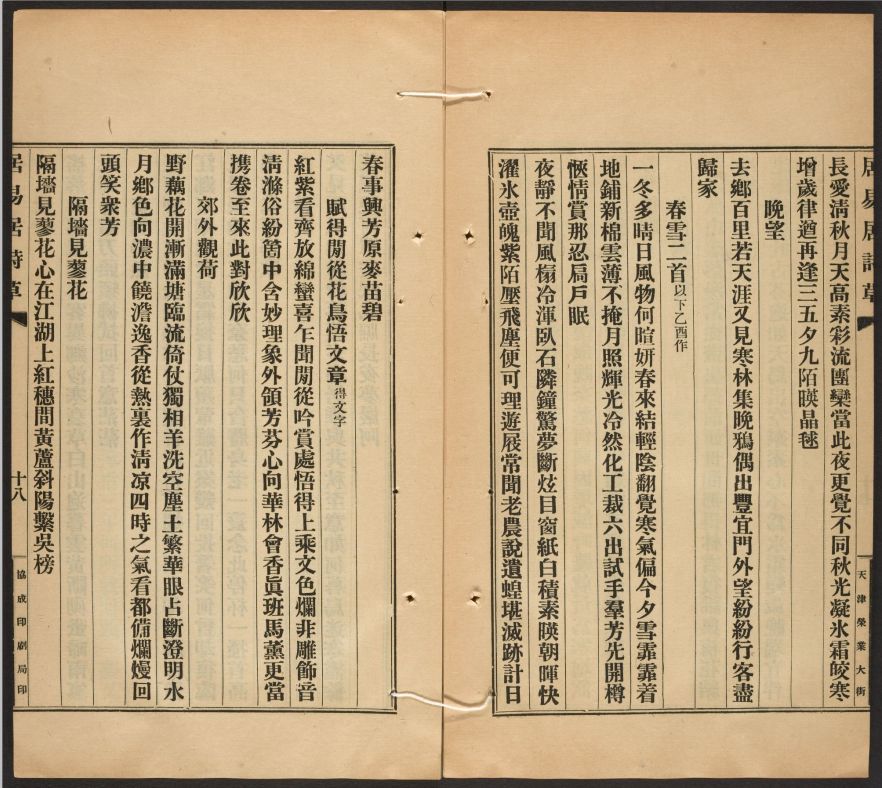 居易居詩草
天津榮業大街
長愛清秋月天高素彩流團欒當此夜更覺不同秋光凝氷霜皎寒
增歲律遒再逢三五夕九陌暎晶毬
晚望
去鄉百里若天涯又見寒林集晚鴉偶出豐宜門外望紛紛行客盡
歸家
春雪二首以下乙酉作
一冬多晴日風物何暄妍春來結輕陰翻覺寒氣偏今夕雪霏霏着
地鋪新棉雲薄不掩月照輝光冷然化工裁六出試手羣芳先開樽
愜情賞那忍扃戶眠
夜靜不聞風榻冷渾臥石隣鐘驚夢斷炫目窗紙白積素暎朝暉快
濯氷壺魄紫陌壓飛塵便可理遊屐常聞老農說遺蝗堪滅跡計日
春事興芳原麥苗碧
賦得閒從花鳥悟文章得文字
紅紫看齊放綿蠻喜乍聞閒從吟賞處悟得上乘文色爛非雕飾音
清滌俗紛箇中含妙理象外領芳芬心向華林會香眞班馬薰更當
携卷至來此對欣欣
郊外觀荷
野藕花開漸滿塘臨流倚仗獨相羊洗空塵土繁華眼占斷澄明水
月鄉色向濃中饒澹逸香從熱裏作清凉四時之氣看都備爛熳回
頭笑衆芳
隔墻見蓼花
隔墻見蓼花心在江湖上紅穗間黃蘆斜陽繫吳榜
居易居詩草
十八
協成印刷局印